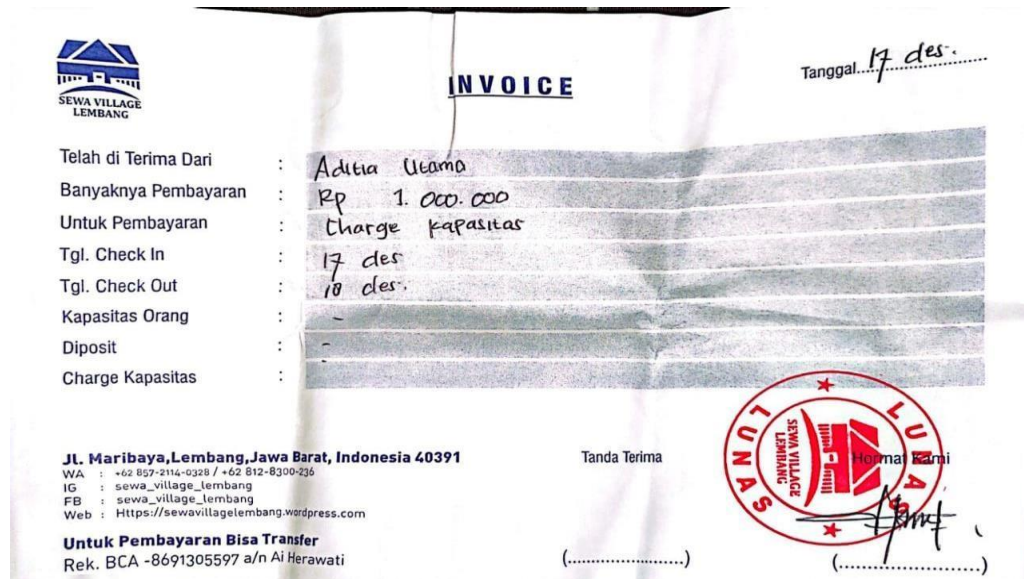 SEWA VILLAGE
LEMBANG
INVOICE
Tanggal 17 des.
Telah di Terima Dari : Aditia Utama
Banyaknya Pembayaran : Rp 1.000.000
Untuk Pembayaran : Charge kapasitas
Tgl. Check In : 17 des
Tgl. Check Out : 18 des.
Kapasitas Orang : -
Diposit : -
Charge Kapasitas :
Jl. Maribaya,Lembang,Jawa Barat, Indonesia 40391
WA : +62 857-2114-0328 / +62 812-8300-236
IG : sewa_village_lembang
FB : sewa_village_lembang
Web : Https://sewavillagelembang.wordpress.com
Untuk Pembayaran Bisa Transfer
Rek. BCA -8691305597 a/n Ai Herawati
Tanda Terima
(......................)
Hormat Kami
(......................)
LUNAS
SEWA VILLAGE
LEMBANG
LUNAS